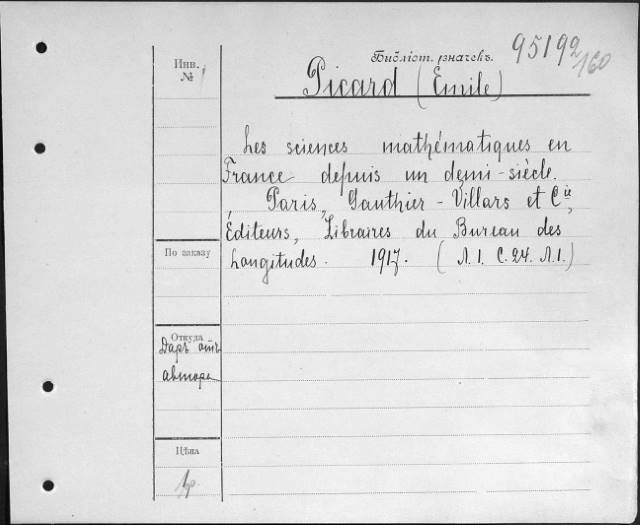 Инв.
№
Библіот. значекъ.
95192
160
Picard (Emile)
Les sciences mathématiques en
France depuis un demi-siècle.
, Paris, Gauthier-Villars et Cie,
Éditeurs, Libraires du Bureau des
Longitudes. 1917. (Л.1. С.24. Л.1.)
По заказу
Откуда
Даръ отъ
автора
Цѣна